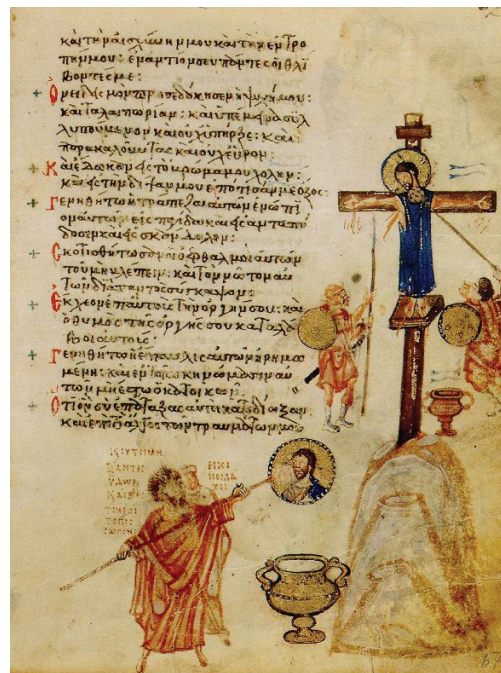 καὶ τὴν αἰσχύνην μου καὶ τὴν ἐντρο
πήν μου· ἐναντίον σου πάντες οἱ θλί
βοντές με:
Ὀνειδισμὸν προσεδόκησεν ἡ ψυχή μου
καὶ ταλαιπωρίαν· καὶ ὑπέμεινα συλ
λυπούμενον καὶ οὐχ ὑπῆρξε· καὶ
παρακαλοῦντας καὶ οὐχ εὗρον:
Καὶ ἔδωκαν εἰς τὸ βρῶμά μου χολήν·
καὶ εἰς τὴν δίψαν μου ἐπότισάν με ὄξος:
Γενηθήτω ἡ τράπεζα αὐτῶν ἐνώπι
ον αὐτῶν εἰς παγίδα καὶ εἰς ἀνταπό
δοσιν καὶ εἰς σκάνδαλον:
Σκοτισθήτωσαν οἱ ὀφθαλμοὶ αὐτῶν
τοῦ μὴ βλέπειν· καὶ τὸν νῶτον αὐ
τῶν διαπαντὸς σύγκαμψον:
Ἔκχεον ἐπ' αὐτοὺς τὴν ὀργήν σου· καὶ
ὁ θυμὸς τῆς ὀργῆς σου καταλά
βοι αὐτούς:
Γενηθήτω ἡ ἔπαυλις αὐτῶν ἠρημω
μένη· καὶ ἐν τοῖς σκηνώμασιν αὐ
τῶν μὴ ἔστω ὁ κατοικῶν:
Ὅτι ὃν σὺ ἐπάταξας αὐτοὶ κατεδίωξαν
καὶ ἐπὶ τὸ ἄλγος τῶν τραυμάτων μου
ΕΙΚΟ
67